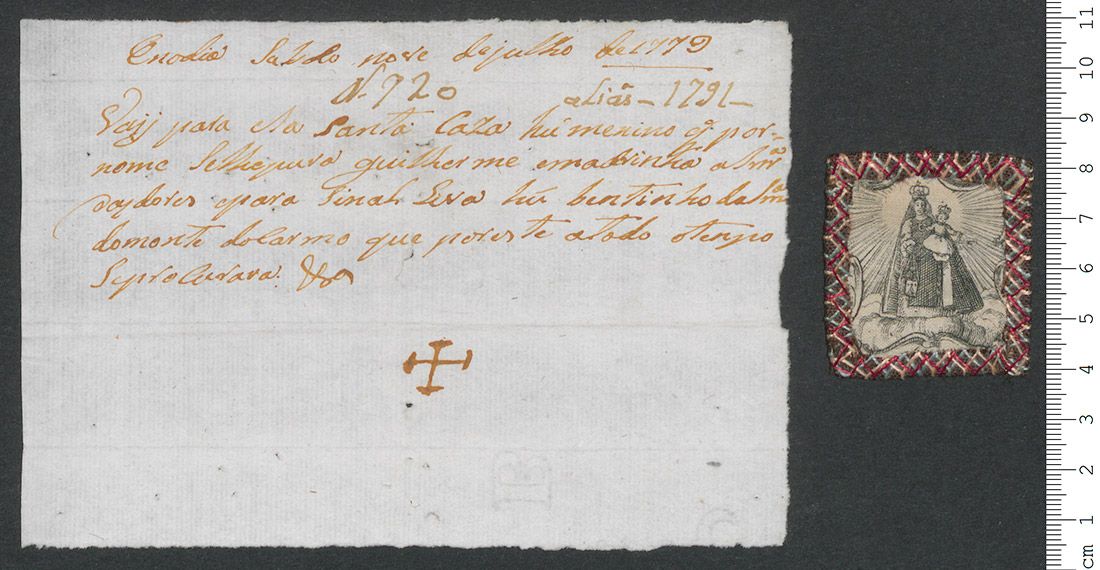 Enodia Sabdo nove dejulho de 1779
N. 920 aLiãs - 1791 -
Vaij para esta Santa Caza hú menino q̃ por-
nome Selhepura guilherme emadrinha a Snr.ª
dasdores epara Sinal Leva hú bentinho daSnr.ª
domonte doCarmo que poreste atodo otenpo
SeproCurara.
11
10
9
8
7
6
5
4
3
2
1
cm